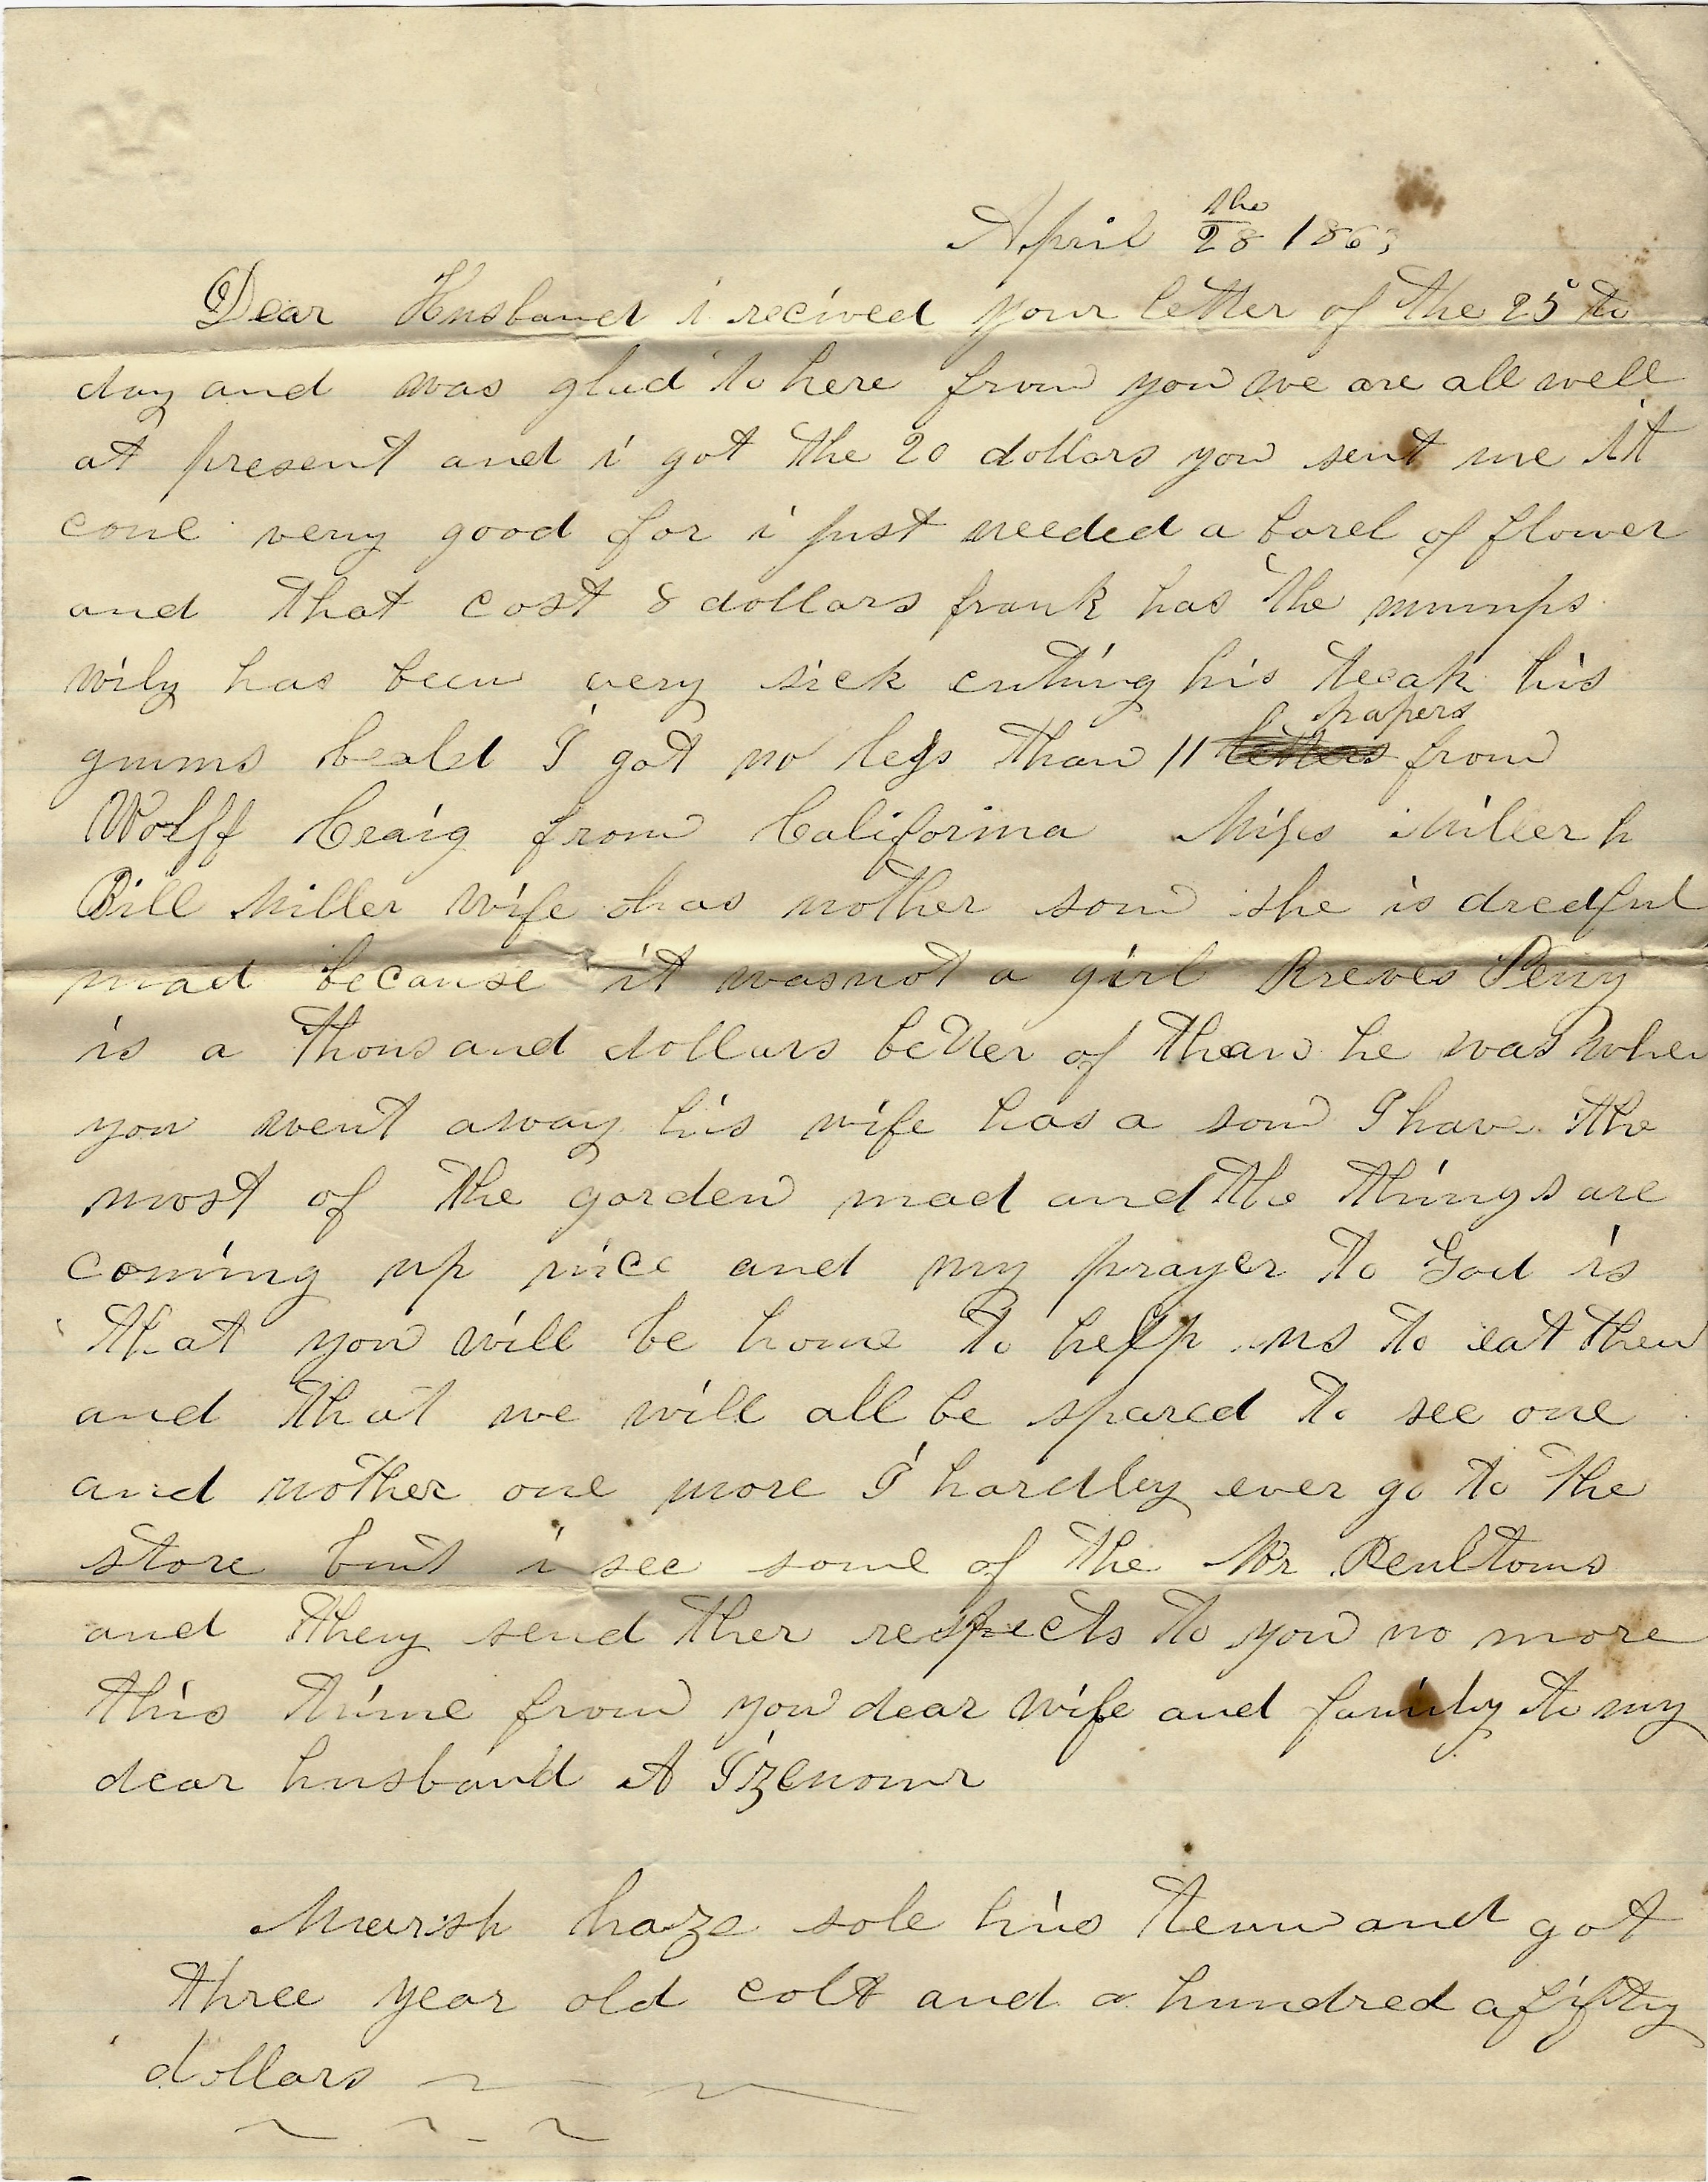 April the 28 1863
Dear Husband i recived your letter of the 25 to
day and was glad to here from you we are all well
at present and i got the 20 dollars you sent me it
come very good for i just needed a barel of flower
and that cost 8 dollars frank has the mumps
wily has been very sick cuting his teeah his
gumms beald I got no less than 11 papers from
Wolff Craig from California Miss Miller
Bill Miller wife has nother son she is dredful
mad because it was not a girl Reeves Perry
is a thousand dollars better of than he was when
you went away his wife has a son I have the
most of the garden mad and the things are
coming up nice and my prayer to God is
that you will be home to help us to eat them
and that we will all be spared to see one
and nother one more I hardley ever go to the
store but i see some of the Mr
and they send ther respects to you no more
this time from you dear wife and family to my
dear husband A Izenour
haze sole his team and got
three year old colt and a hundred a fifty
dollars